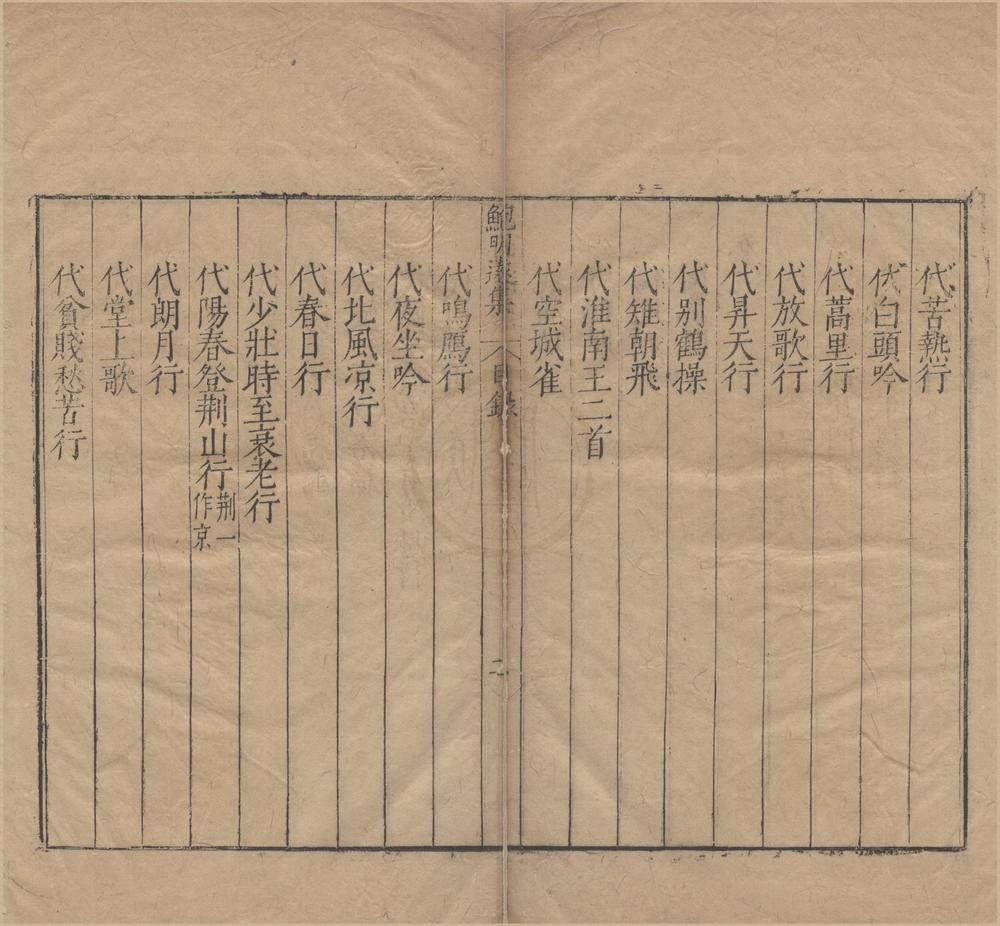 代苦熱行
代白頭吟
代蒿里行
代放歌行
代昇天行
代别鶴操
代雉朝飛
代淮南王二首
代空城雀
鮑明遠集 目錄 二
代鳴鴈行
代夜坐吟
代北風凉行
代春日行
代少壯時至衰老行
代陽春登荆山行荆一作京
代朗月行
代堂上歌
代貧賤愁苦行